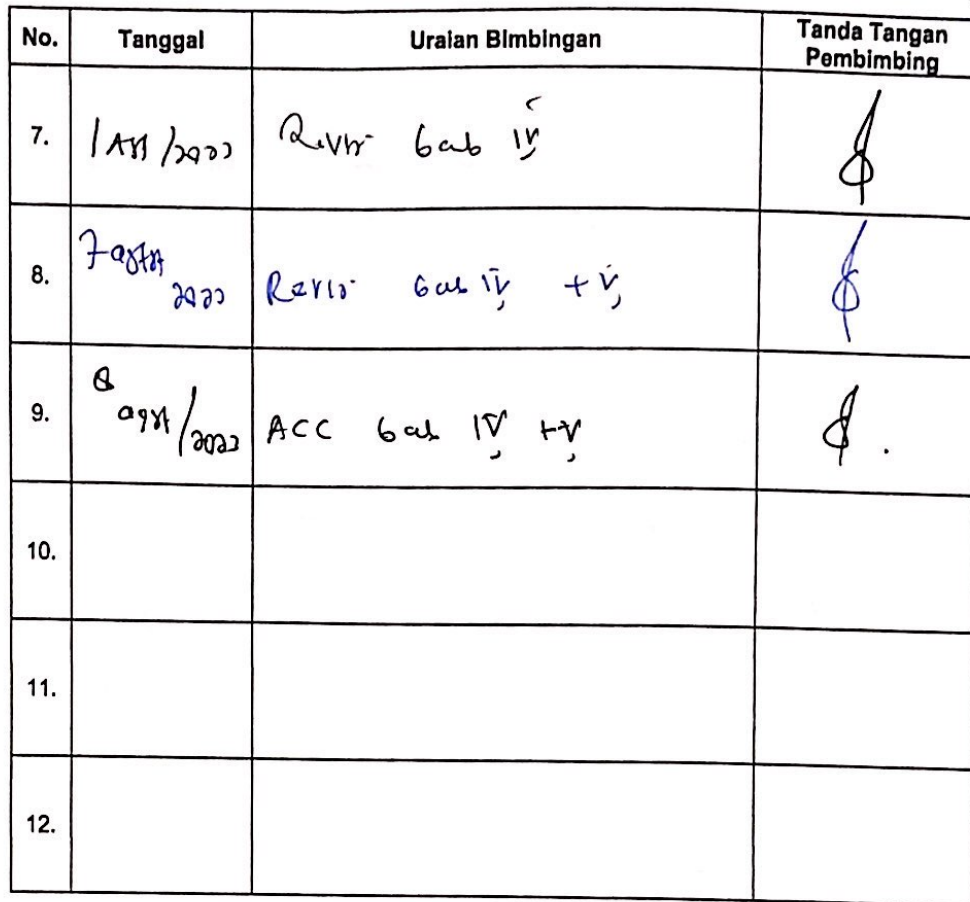 No. Tanggal Uraian Bimbingan Tanda Tangan Pembimbing
7. 1 Ags/2022 Revisi bab IV
8. 7 agsts 2022 Revisi bab IV + V
9. 8 agst/2022 ACC bab IV + V
10.
11.
12.